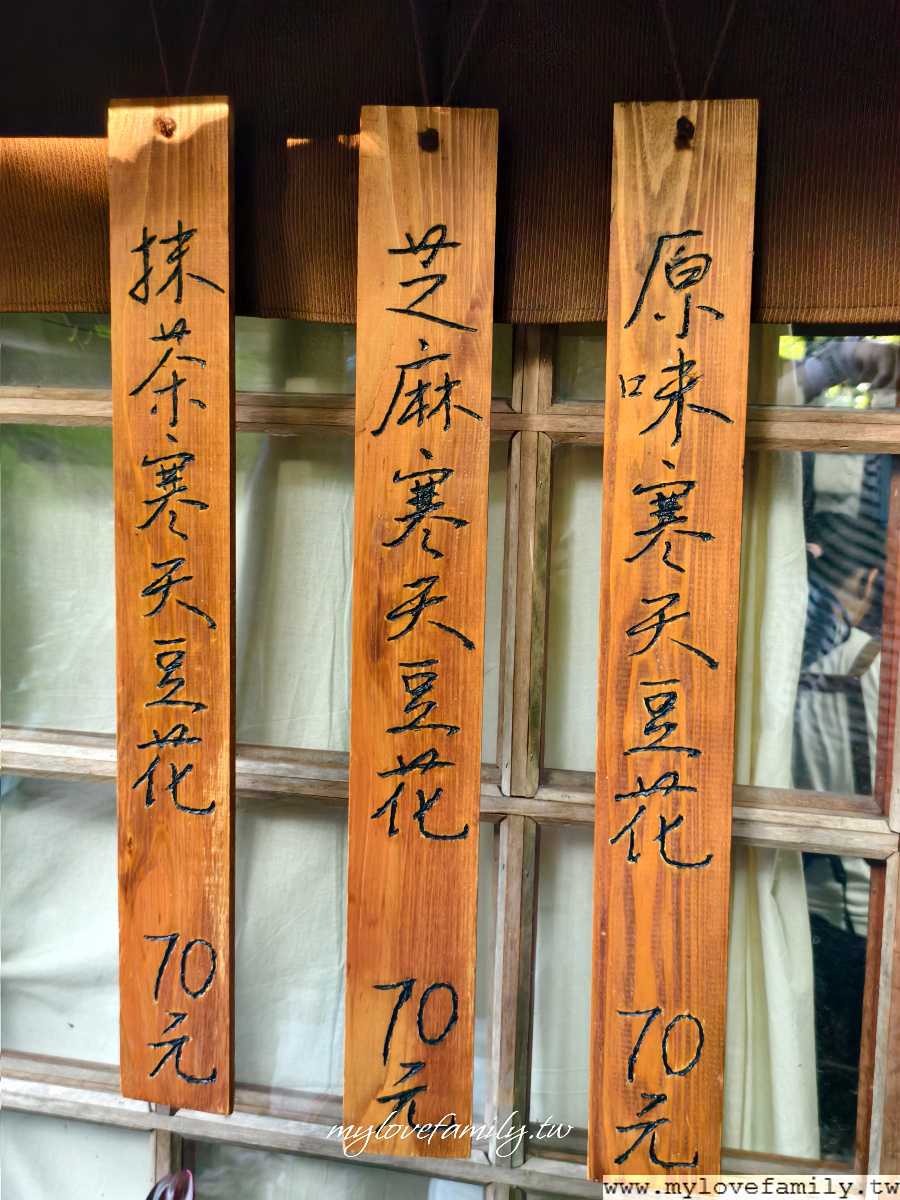 原味寒天豆花 70元
芝麻寒天豆花 70元
抹茶寒天豆花 70元
mylovefamily.tw
www.mylovefamily.tw